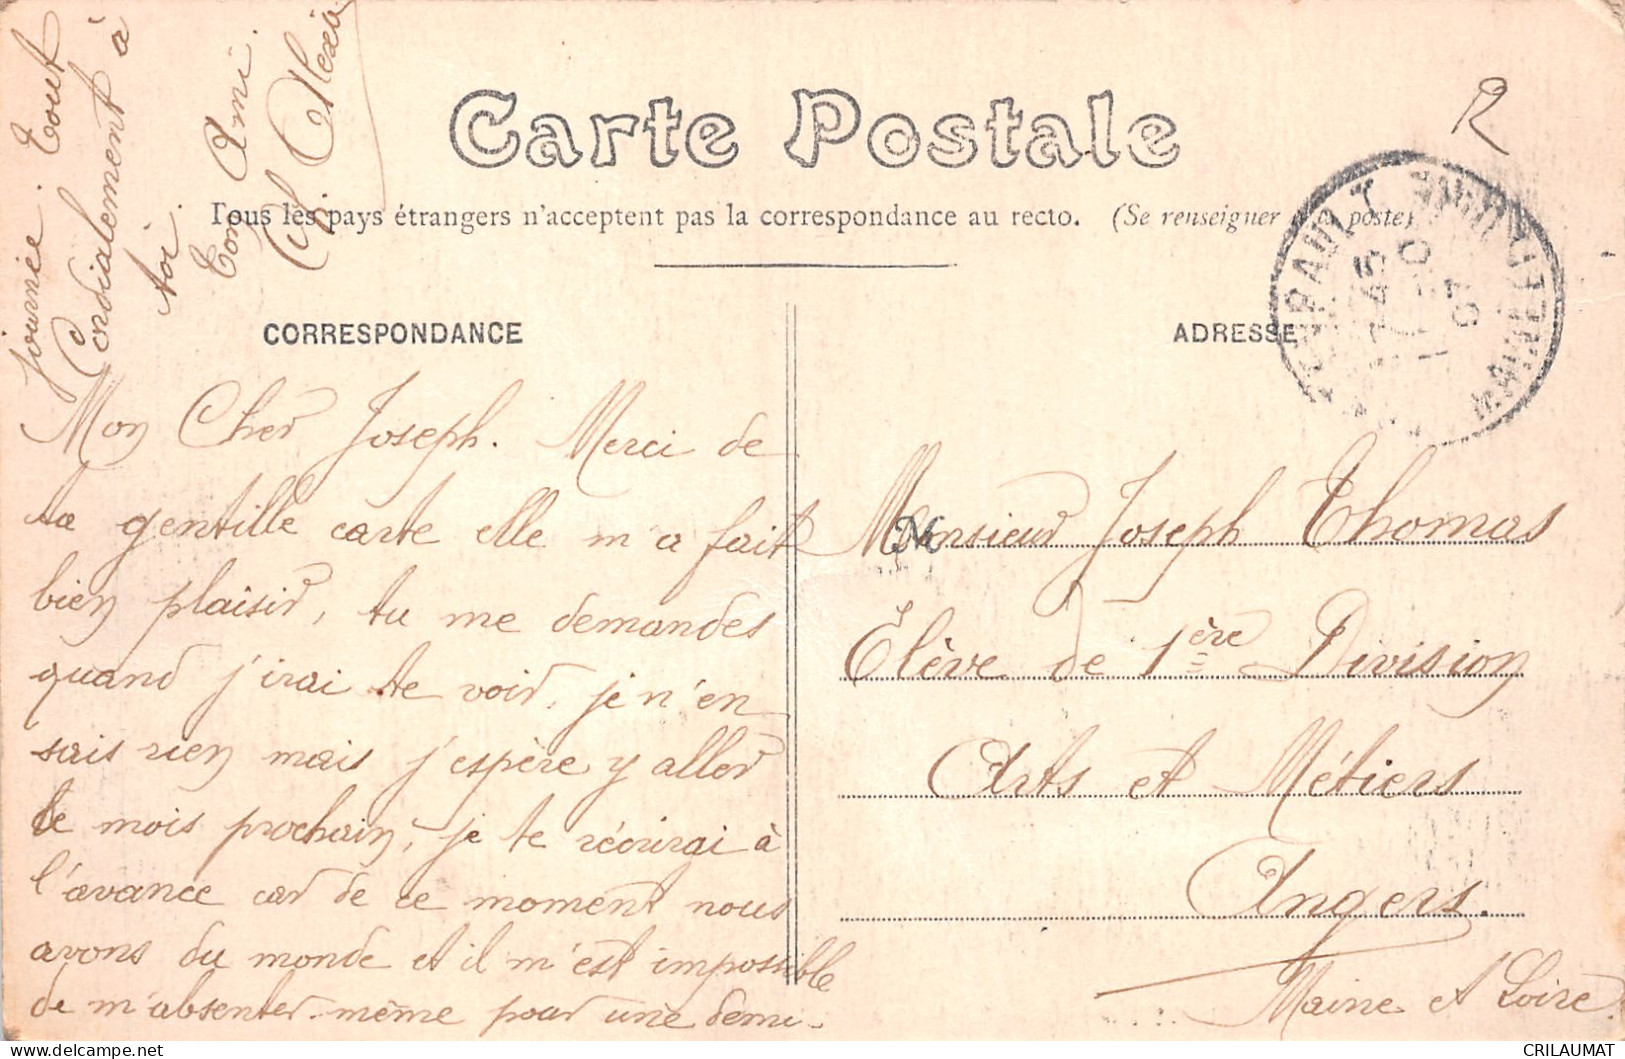 Carte Postale
Tous les pays étrangers n'acceptent pas la correspondance au recto. (Se renseigner à la poste)
CORRESPONDANCE
Mon Cher Joseph. Merci de
ta gentille carte elle m'a fait
bien plaisir, tu me demandes
quand j'irai te voir, je n'en
sais rien mais j'espère y aller
le mois prochain, je te récrirai à
l'avance car de ce moment nous
avons du monde et il m'est impossible
de m'absenter même pour une demi-
journée. Tout
Cordialement à
toi.
Ton Ami.
Alexis
ADRESSE
R
Monsieur Joseph Thomas
Élève de 1ère Division
Arts et Métiers
Angers.
Maine et Loire
CRILAUMAT